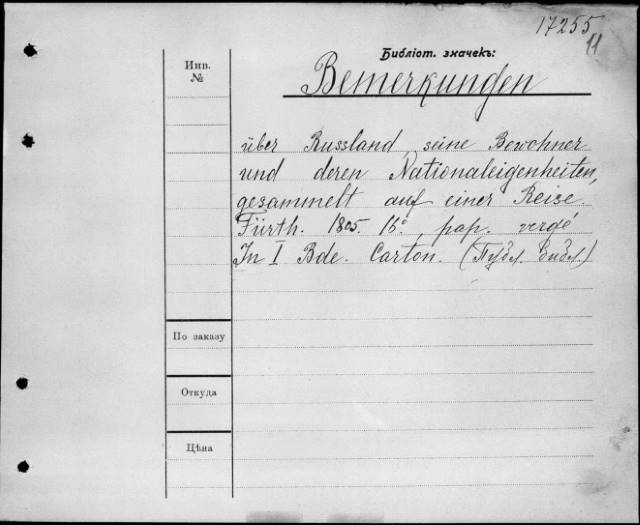 17255
11
Библіот. значекъ:
Инв.
№
Bemerkungen
über Russland, seine Bewohner
und deren Nationaleigenheiten,
gesammelt auf einer Reise.
Fürth. 1805. 16°, pap. vergé
In I Bde. Carton. (Публ. библ.)
По заказу
Откуда
Цѣна